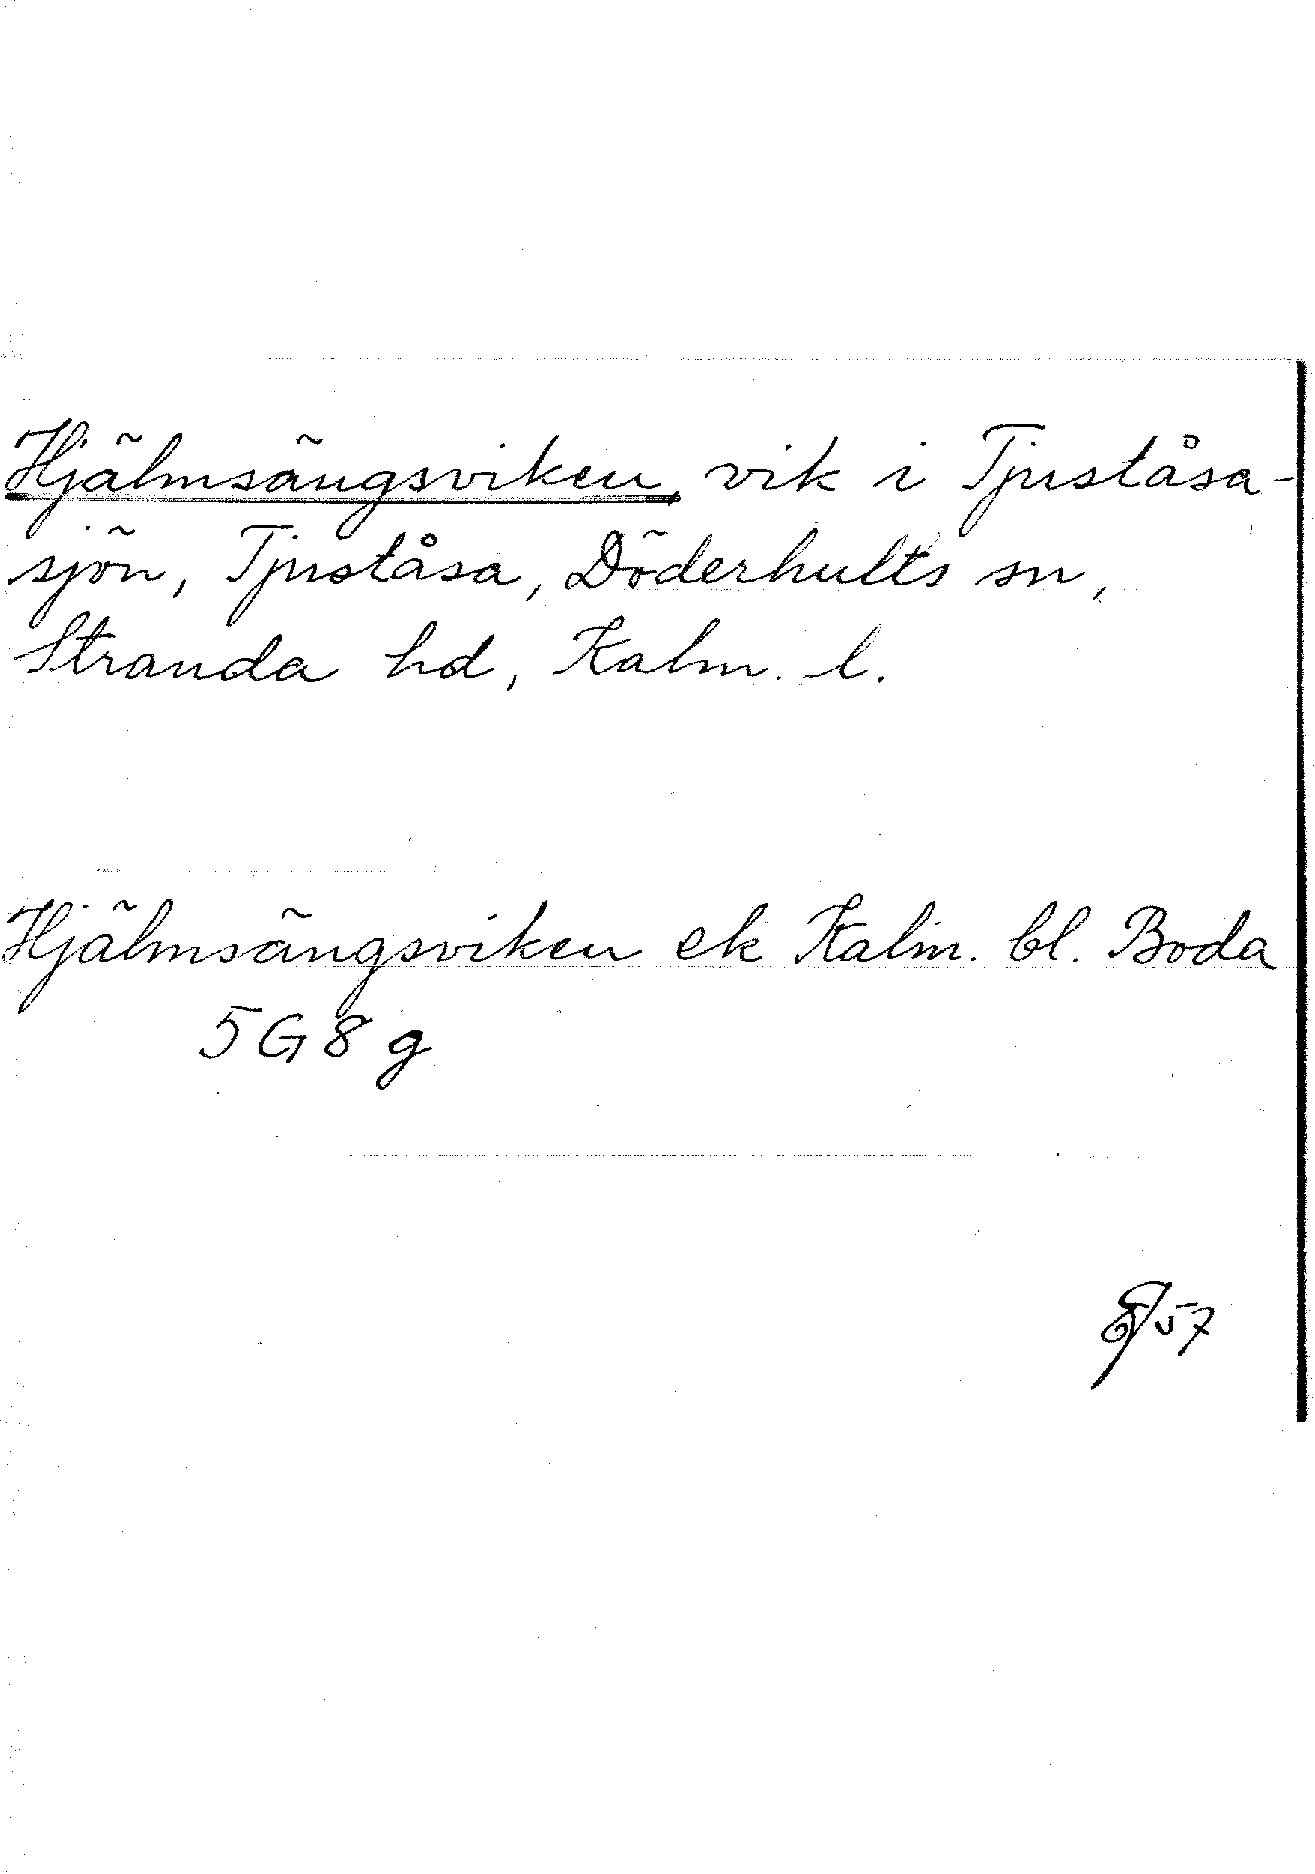 Hjälmsängsviken, vik i Tjuståsa-
sjön, Tjuståsa, Döderhults sn,
Stranda hd, Kalm. l.
Hjälmsängsviken ek Kalm. bl. Boda
5 G 8 g
57